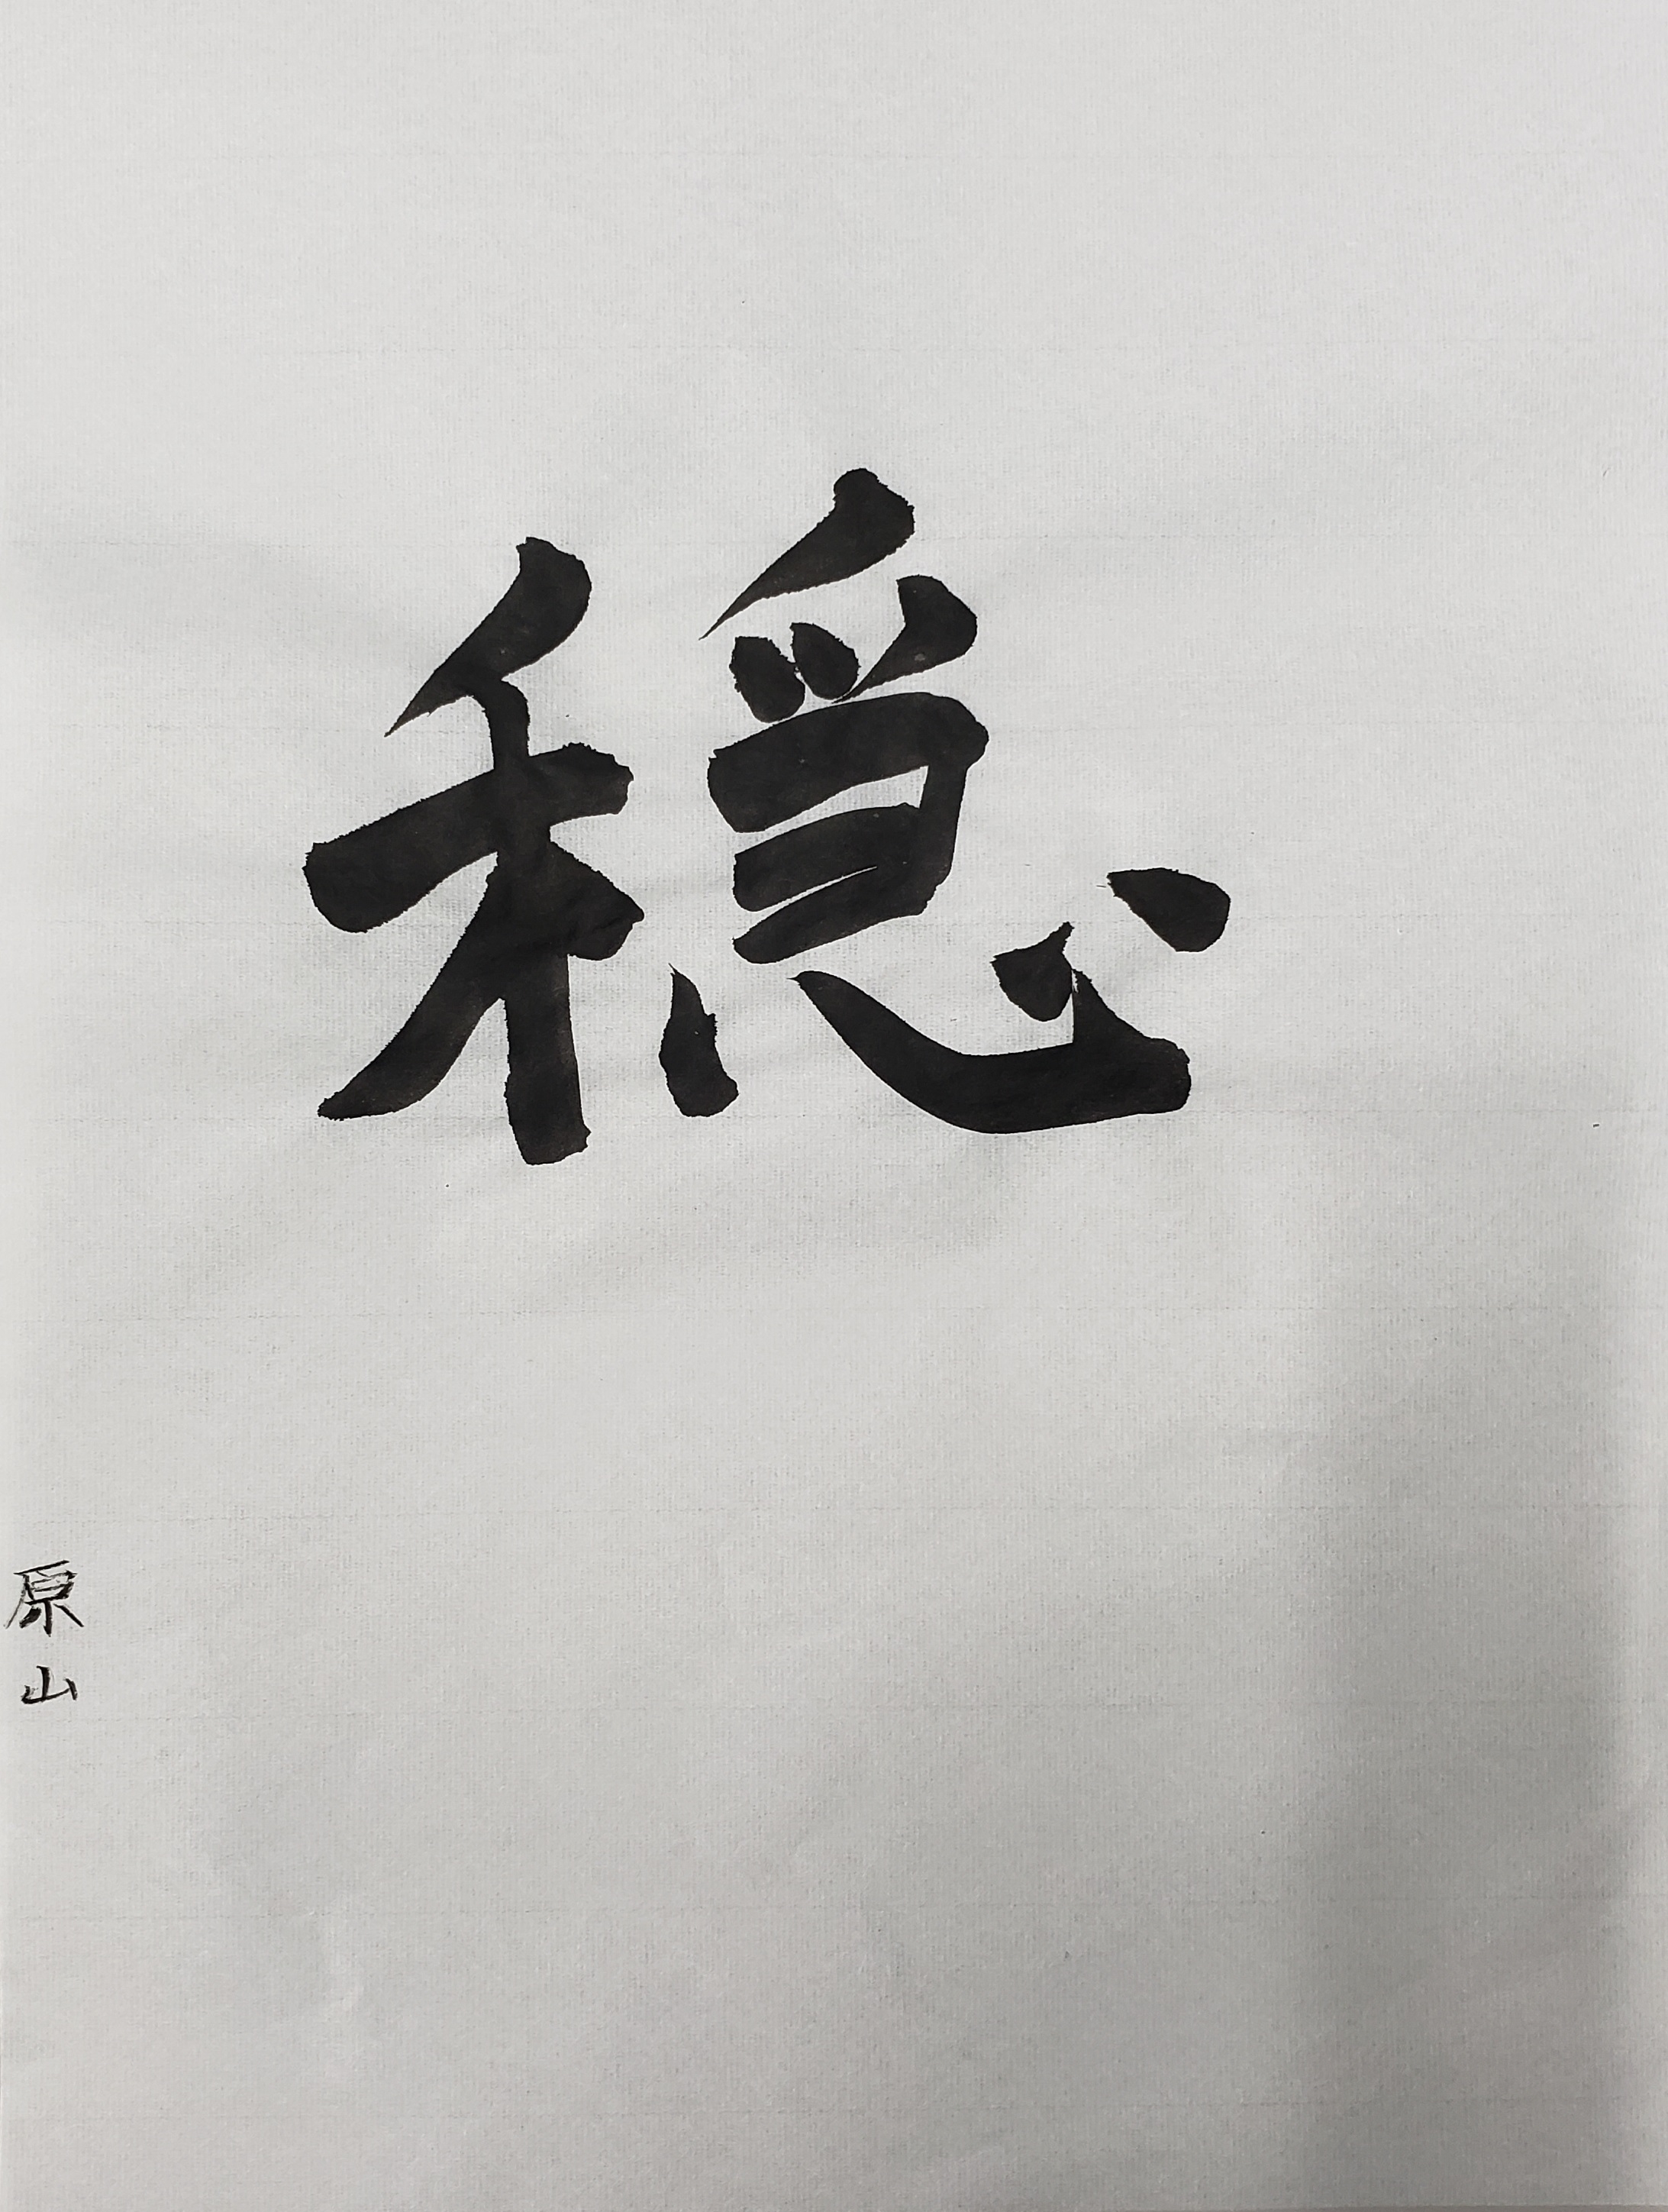 穏
原山